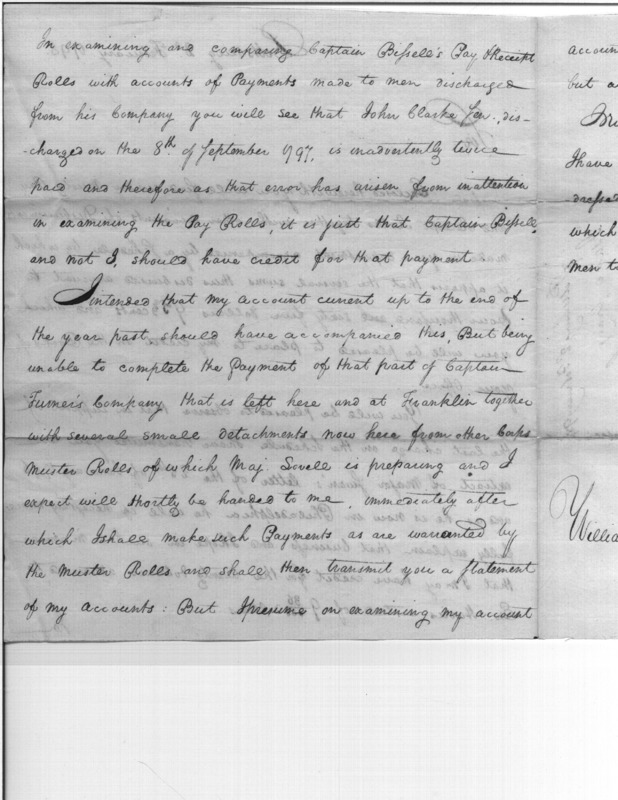 In examining and comparing Captain Bissell's Pay & Receipt
Rolls with accounts of Payments made to men discharged
from his Company you will see that John Clarke Sen., dis-
-charged on the 8th. of September 1797, is inadvertently twice
paid and therefore as that error has arisen from inattention
in examining the Pay Rolls, it is just that Captain Bissell,
and not I, should have credit for that payment
I intended that my account current up to the end of
the year past, should have accompanied this, But being
unable to complete the Payment of that part of Captain
Turner's Company that is left here and at Franklin together
with several small detachments now here from other Corps
Muster Rolls of which May. Lovell is preparing and I
expect will shortly be handed to me, immediately after
which I shall make such Payments as are warranted by
the Muster Rolls and shall then transmit you a Statement
of my accounts: But I presume on examining my account
accoun
but a
I have
dressed
which
men t
Willia